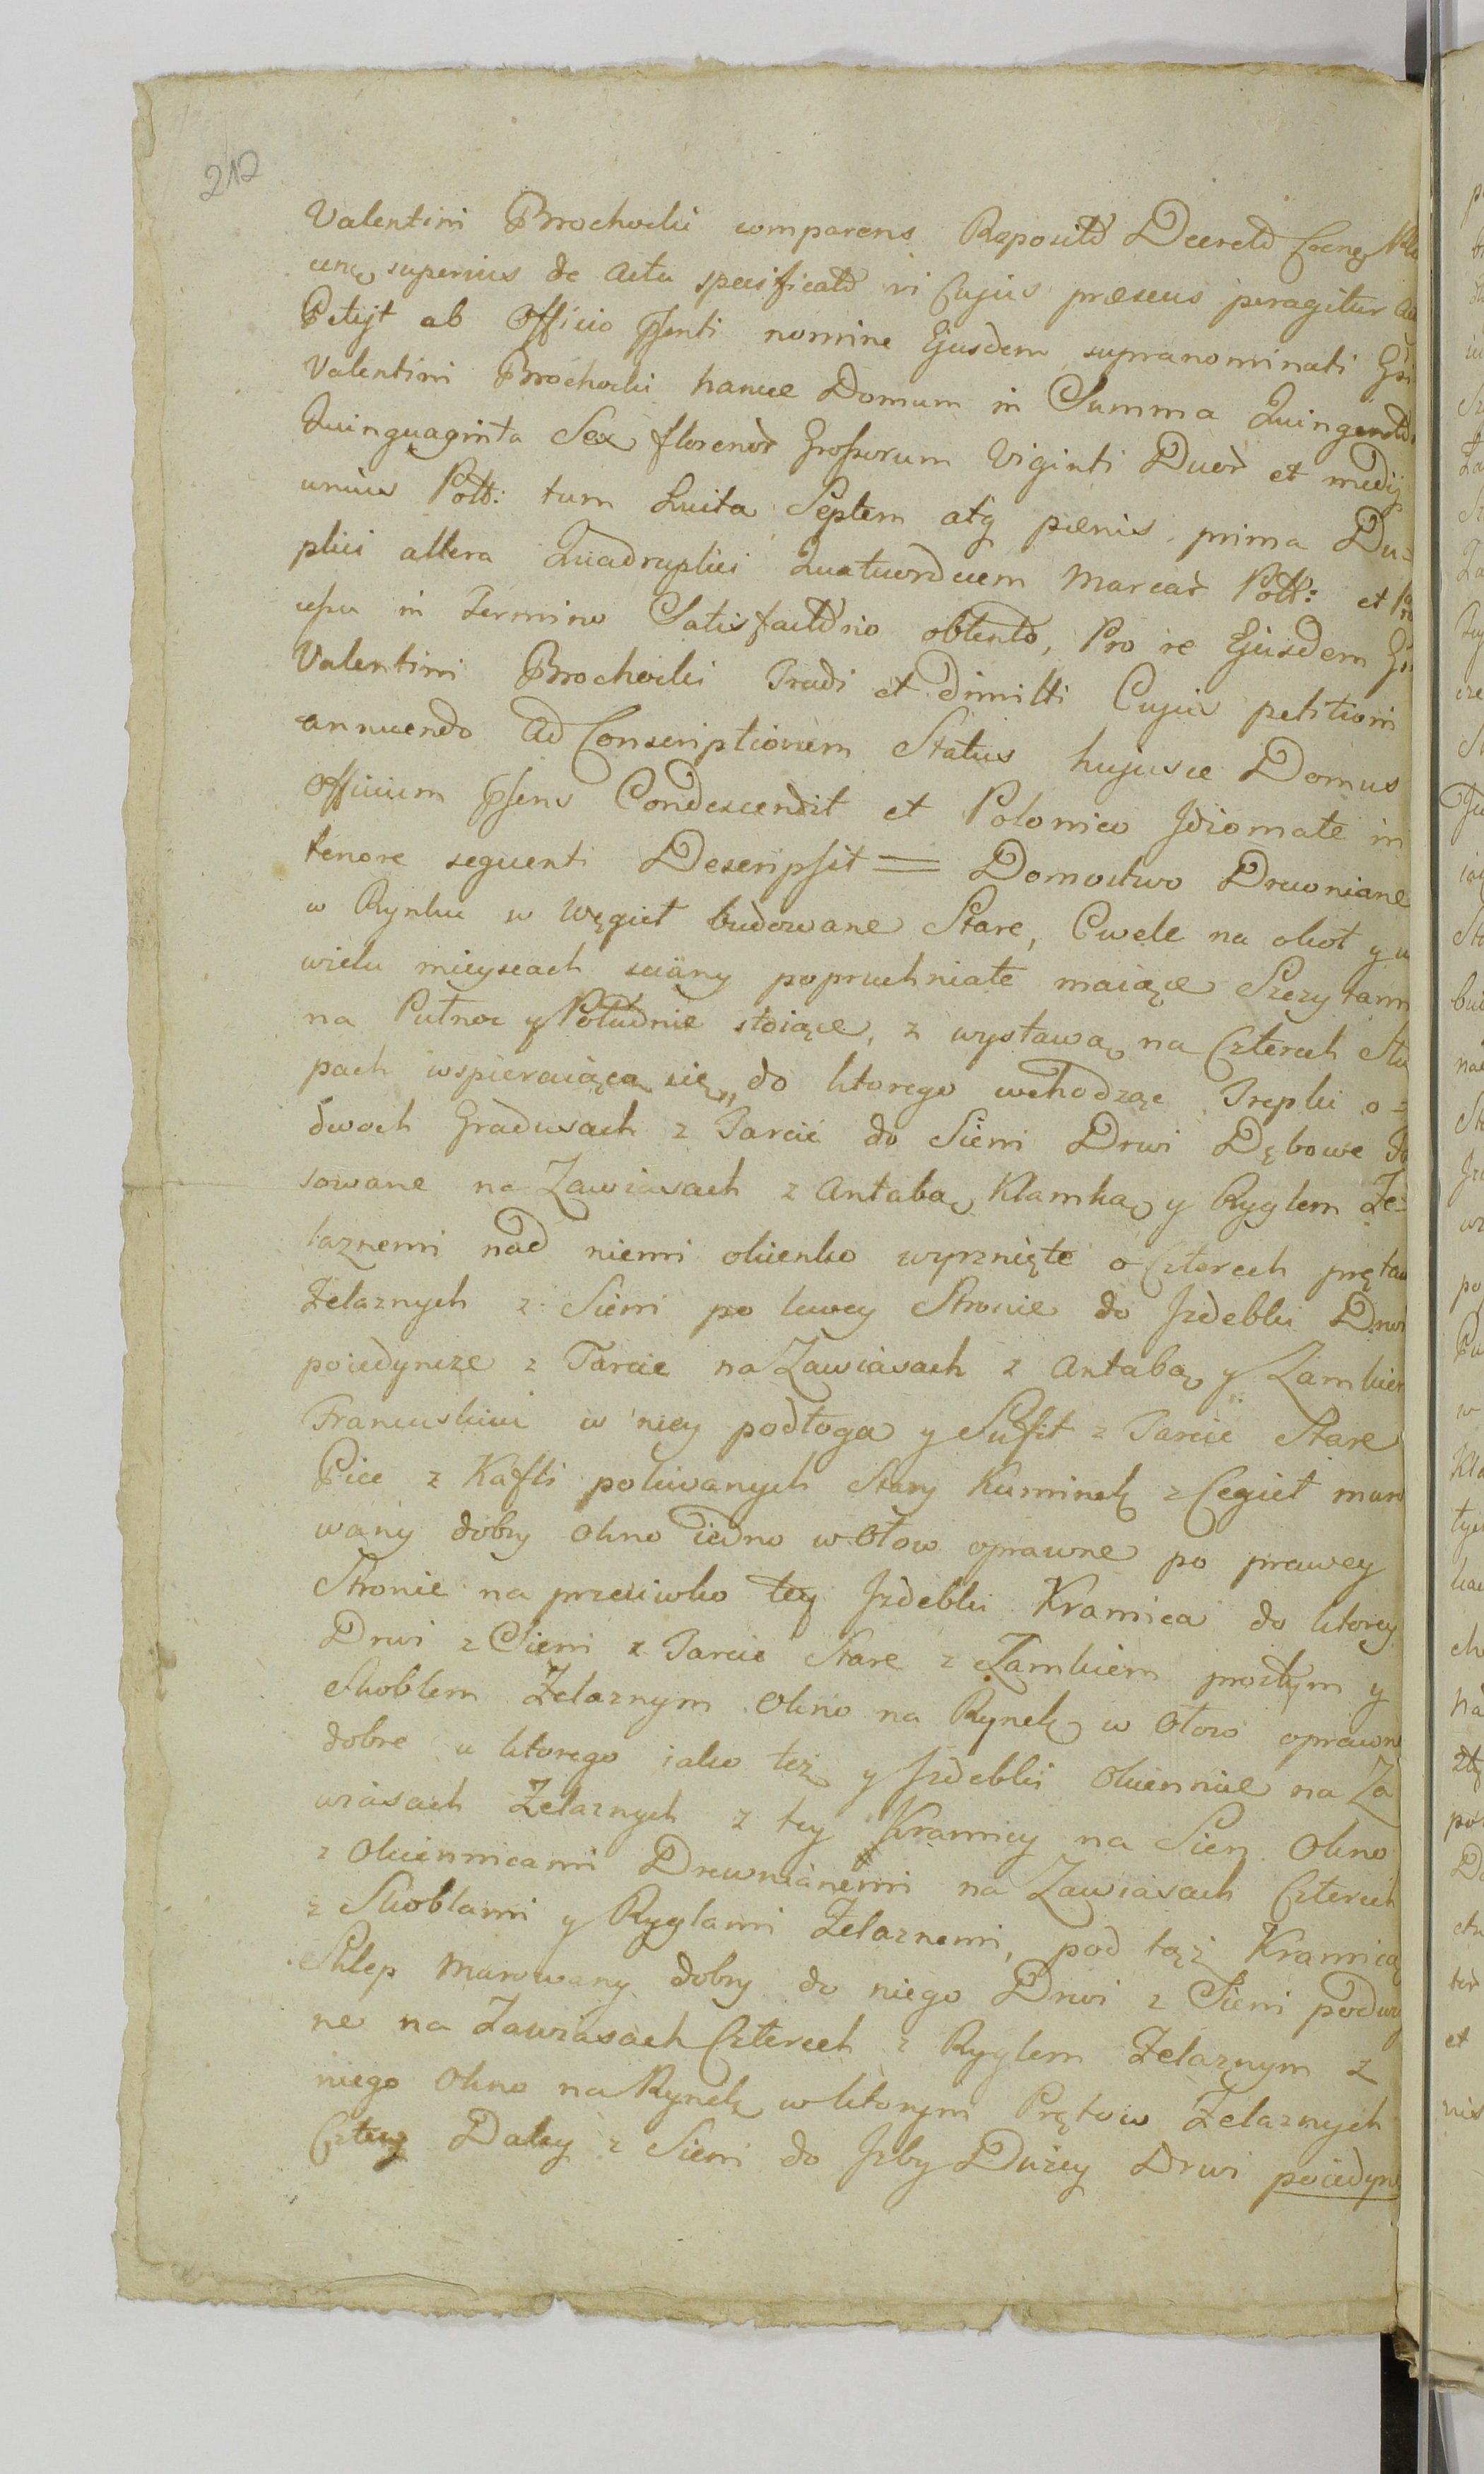 212
Valentini Brochocki comparens Reposito Decreto
superius de actu specificato vi Cujus præsens peragitur
Petijt ab Officio pssenti nomine Ejusdem supranominati
Valentini Brochocki hancce Domum in Summa
Quinquaginta Sex florenor Grossorum Viginti Duor et medij
unius Poll: tum Luita Septem atq pænis prima Du=
plici altera Quadruplici Quatuordecem Marcar Poll: et
in Termino Satisfactorio obtento, Pro re Ejusdem
Valentini Brochocki Tradi et dimitti Cujus petitioni
annuendo ad Conscriptionem Status hujusce Domus
Officium pssens Condescendit et Polonico Idiomate in
tenore sequenti Descripsit = Domostwo Drewniane
w Rynku w Węgieł budowane Stare, Cwele na okoł y w
wielu mieyscach sciany popruchniałe maiące Szczytami
na Pułnoc y Południe stoiące, z wystawą na Czterech Słu
pach wspieraiącą się, do ktorego wchodząc Trepki o =
dwoch Gradusach z Tarcic do Sieni Drwi Dębowe
sowane na Zawiasach z Antabą Klamką y Ryglem Że=
laznemi nad niemi okienko wyrznięte o Czterech
Zelaznych z Sieni po lewey Stronie do Izdebki Drwi
poiedyncze z Tarcic na Zawiasach z Antabą y Zamkiem
Francuskim w niey podłoga y Sufit z Tarcic Stare
Piec z Kafli polewanych Stary Kuminek z Cegieł muro
wany dobry Okno iedno w Ołow oprawne po prawey
Stronie na przeciwko tey Izdebki Kramica do ktorey
Drwi z Sieni z Tarcic Stare z Zamkiem prostym y
Skoblem Zelaznym Okno na Rynek w Ołow oprawne
dobre u ktorego iako też y Izdebki Okiennice na Za
wiasach Zelaznych z tey Kramicy na Sien Okno
z Okiennicami Drewnianemi na Zawiasach Czterech
z Skoblami y Ryglami Zelaznemi, pod tąż Kramicą
Sklep Murowany dobry do niego Drwi z Sieni
ne na Zawiasach Czterech z Ryglem Zelaznym z
niego Okno na Rynek w ktorym Prętow Zelaznych
Cztery Daley z Sieni do Izby Dużey Drwi poiedyn